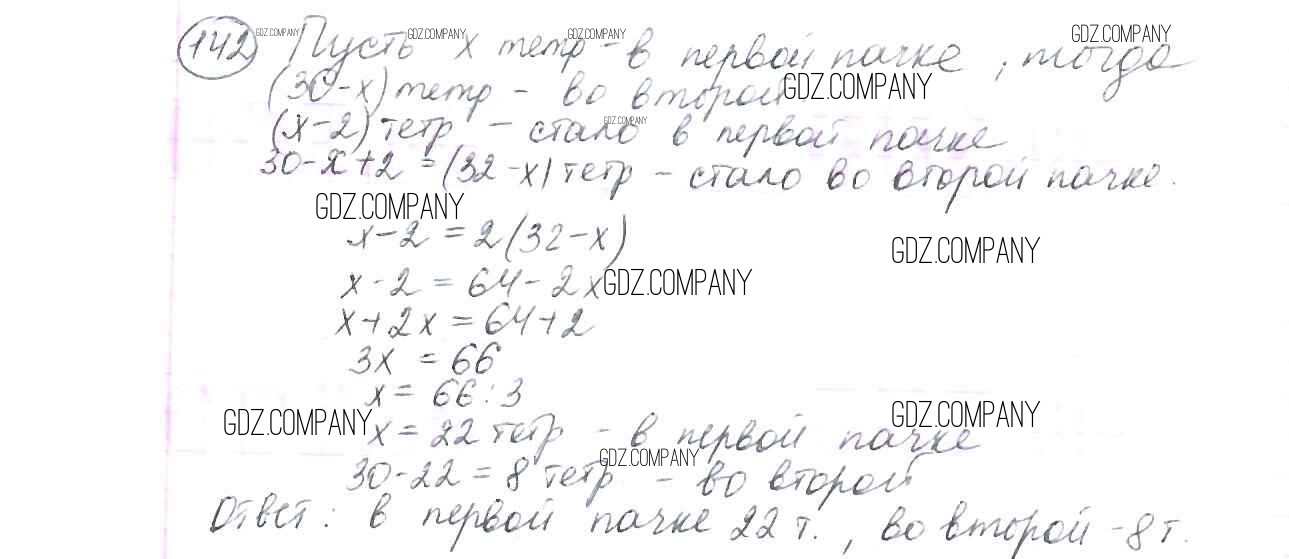 142 Пусть x тетр - в первой пачке, тогда
(30-x) тетр - во второй
(x-2) тетр - стало в первой пачке
30-x+2 = (32-x) тетр - стало во второй пачке.
x-2 = 2(32-x)
x-2 = 64-2x
x+2x = 64+2
3x = 66
x = 66:3
x = 22 тетр - в первой пачке
30-22 = 8 тетр - во второй
Ответ: в первой пачке 22 т., во второй -8 т.
GDZ.COMPANY
GDZ.COMPANY
GDZ.COMPANY
GDZ.COMPANY
GDZ.COMPANY
GDZ.COMPANY
GDZ.COMPANY
GDZ.COMPANY
GDZ.COMPANY
GDZ.COMPANY
GDZ.COMPANY
GDZ.COMPANY